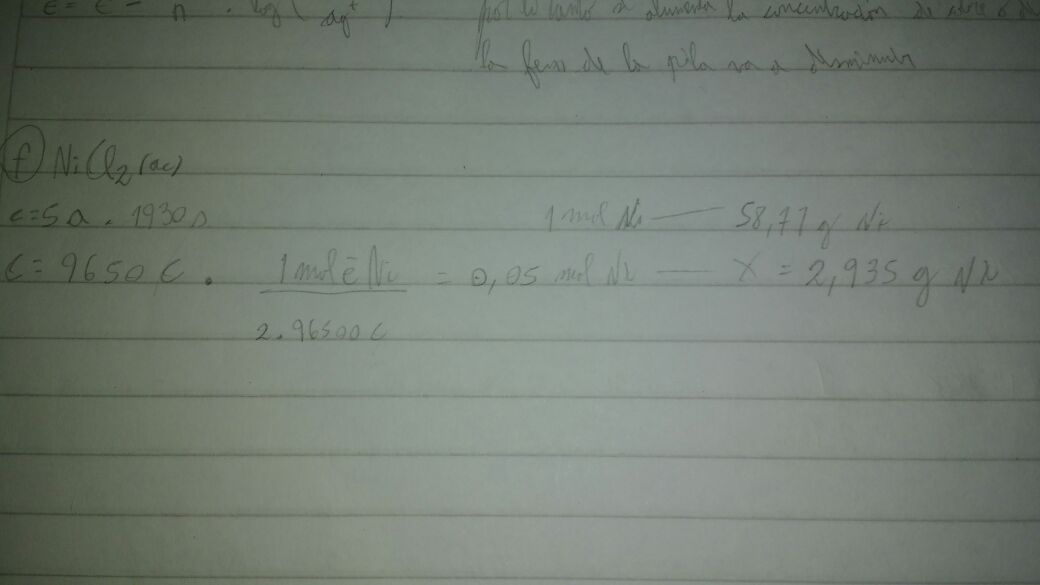 E = E - n . log(
Ag⁺
por lo tanto si aumenta la concentración de
la fem de la pila va a disminuir
f) NiCl₂ (ac)
c=5 a . 1930 s
1 mol Ni — 58,71 g Ni
C = 9650 C . 1 mol ē Ni = 0,05 mol Ni — X = 2,935 g Ni
2.96500 C